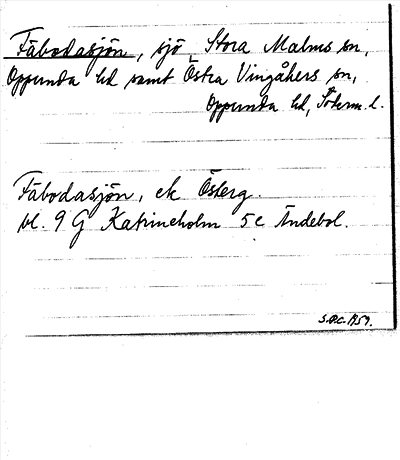 Fäbodasjön, sjö, Stora Malms sn,
Oppunda hd samt Östra Vingåkers sn,
Oppunda hd, Söderm. l.
Fäbodasjön, ek Österg.
bl. 9 G Katrineholm 5 c Ändebol.
1959.